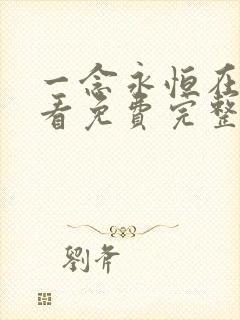 一念永恒在
看免费完整
劉斧